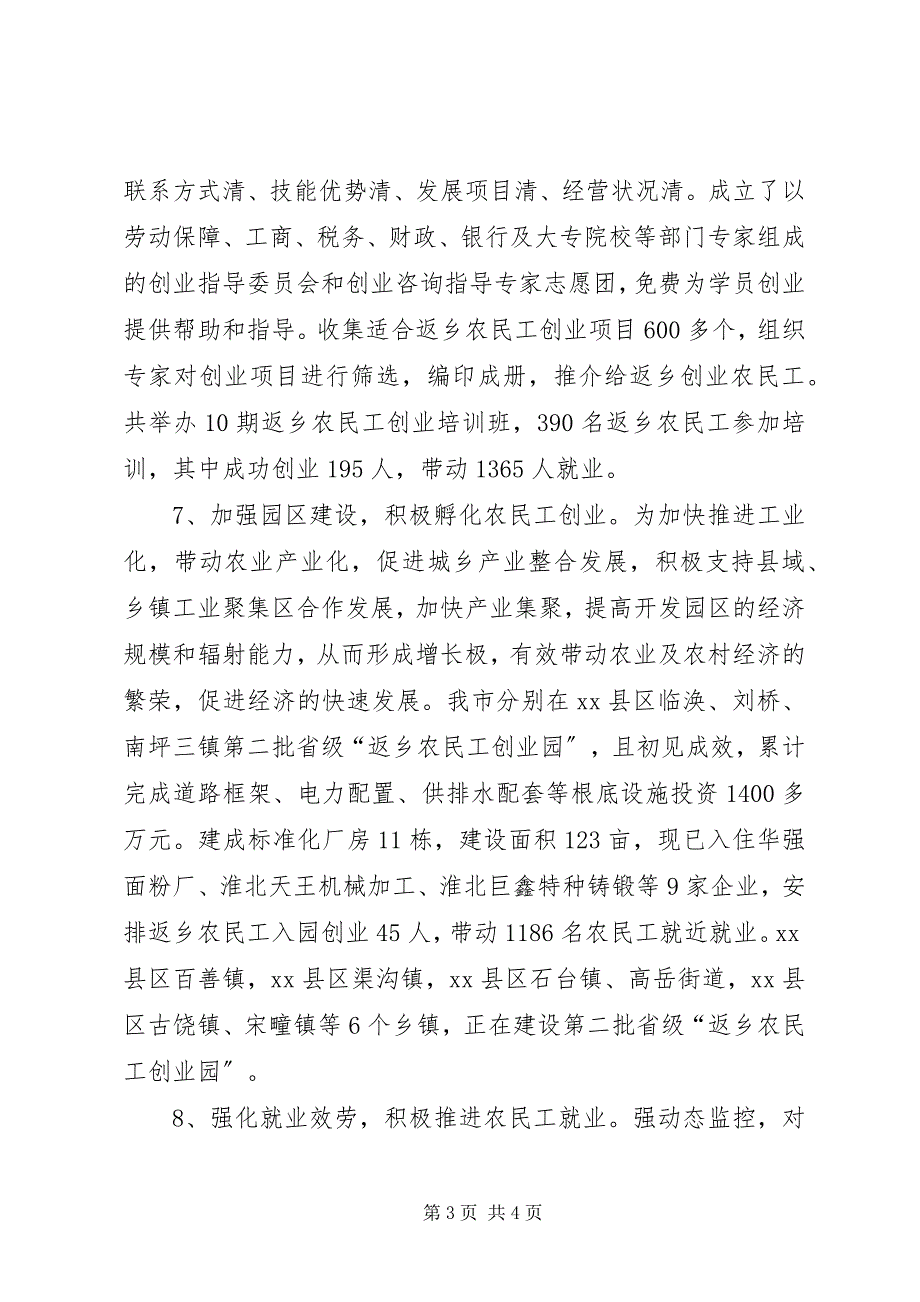 联系方式清、技能优势清、发展项目清、经营状况清。成立了以
劳动保障、工商、税务、财政、银行及大专院校等部门专家组成
的创业指导委员会和创业咨询指导专家志愿团，免费为学员创业
提供帮助和指导。收集适合返乡农民工创业项目 600 多个，组织
专家对创业项目进行筛选，编印成册，推介给返乡创业农民工。
共举办 10 期返乡农民工创业培训班，390 名返乡农民工参加培
训，其中成功创业 195 人，带动 1365 人就业。
7、加强园区建设，积极孵化农民工创业。为加快推进工业
化，带动农业产业化，促进城乡产业整合发展，积极支持县域、
乡镇工业聚集区合作发展，加快产业集聚，提高开发园区的经济
规模和辐射能力，从而形成增长极，有效带动农业及农村经济的
繁荣，促进经济的快速发展。我市分别在 xx 县区临涣、刘桥、
南坪三镇第二批省级“返乡农民工创业园〞，且初见成效，累计
完成道路框架、电力配置、供排水配套等根底设施投资 1400 多
万元。建成标准化厂房 11 栋，建设面积 123 亩，现已入住华强
面粉厂、淮北天王机械加工、淮北巨鑫特种铸锻等 9 家企业，安
排返乡农民工入园创业 45 人，带动 1186 名农民工就近就业。xx
县区百善镇，xx 县区渠沟镇，xx 县区石台镇、高岳街道，xx 县
区古饶镇、宋疃镇等 6 个乡镇，正在建设第二批省级“返乡农民
工创业园〞。
8、强化就业效劳，积极推进农民工就业。强动态监控，对
第 3 页 共 4 页